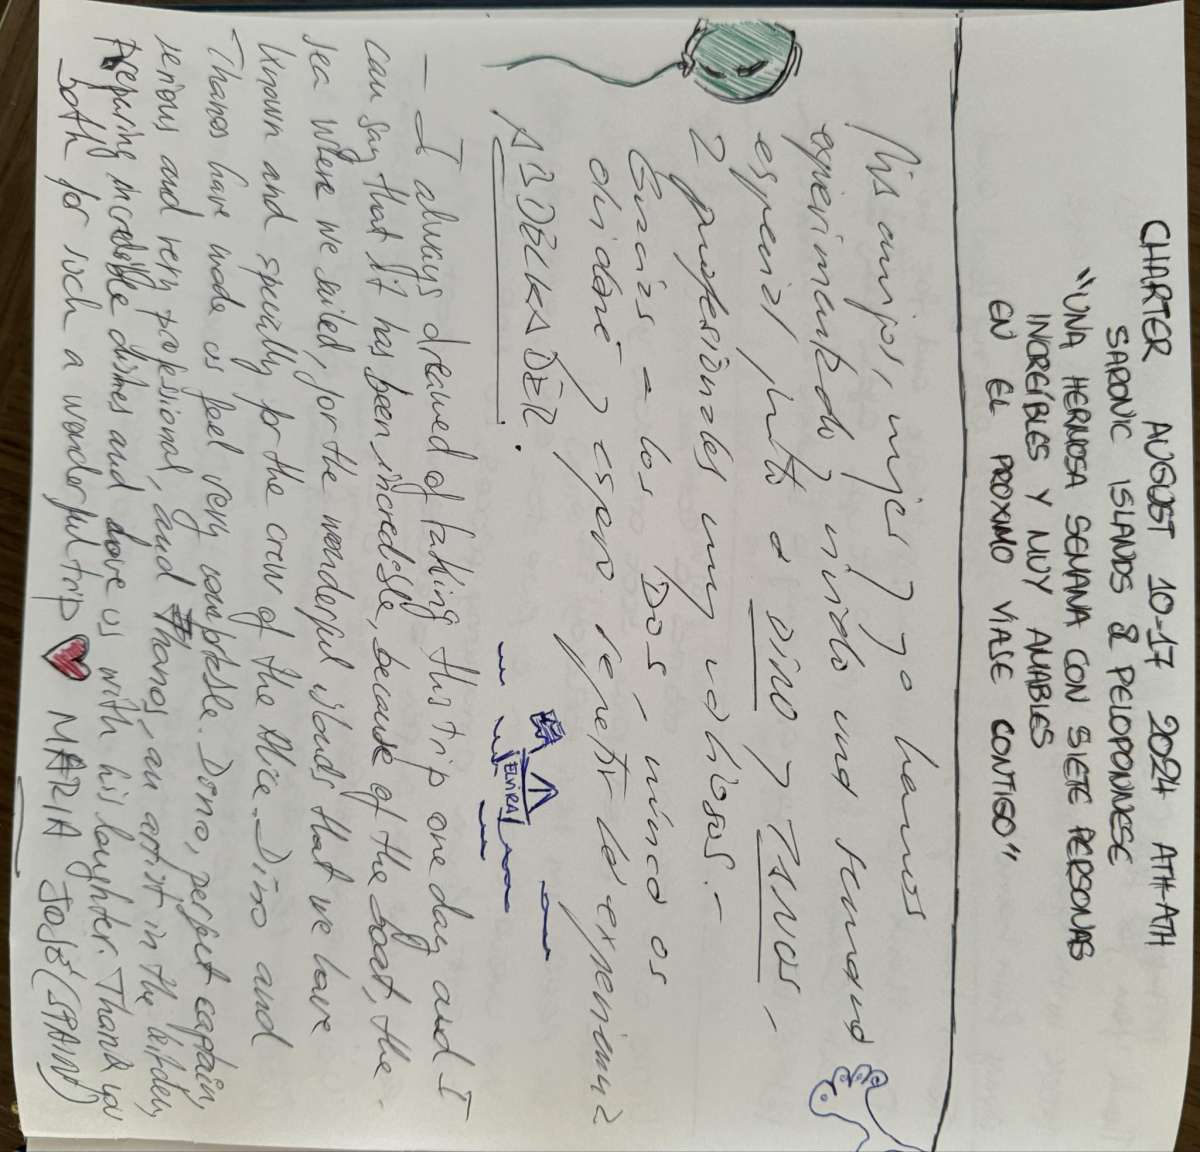 CHARTER AUGUST 10-17 2024 ATH-ATH
SARONIC ISLANDS & PELOPONNESE
"UNA HERMOSA SEMANA CON SIETE PERSONAS
INCREÍBLES Y MUY AMABLES
EN EL PROXIMO VIAJE CONTIGO"
Mis amigos, mujer y yo hemos
experimentado y vivido una semana
especial, junto a DINO y TANOS,
2 profesionales muy valiosos.-
Gracias a los Dos, nunca os
olvidaré y espero repetir la experiencia
ABDELKADER.
- I always dreamed of taking this trip one day and I
can say that it has been incredible, because of the boat, the
sea where we sailed, for the wonderful islands that we have
known and specially for the crew of the Alice. Dino and
Thanos have made us feel very comfortable. Dono, perfect captain,
serious and very professional, and Thanos, an artist in the kitchen,
Preparing incredible dishes and love us with his laughter. Thank you
both for such a wonderful trip ♥ MARIA JOSÉ (SPAIN)
ELVIRA